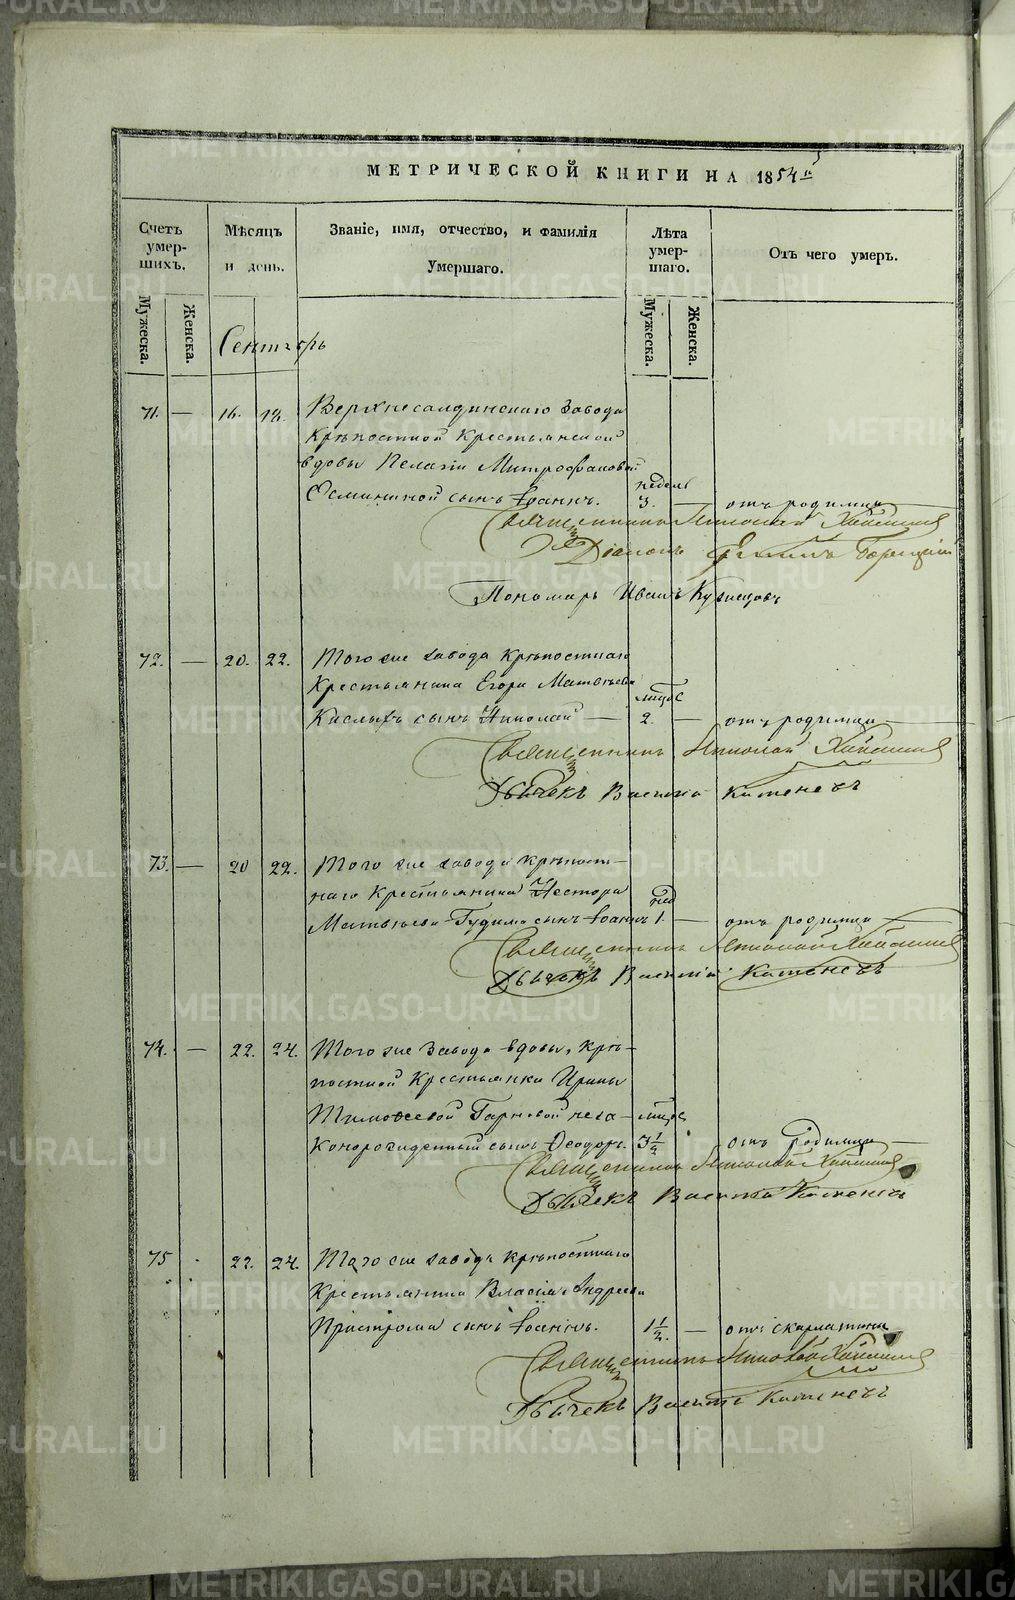 МЕТРИЧЕСКОЙ КНИГИ НА 1854й
Счетъ умерших. Мѣсяцъ и день. Званіе, имя, отчество, и фамилія Умершаго. Лѣта умершаго. Отъ чего умеръ.
Мужеска. Женска. Мужеска. Женска.
Сентябрь
71. — 16. 18. Верхнесалдинскаго завода
Крѣпостной Крестьянской
вдовы Пелагіи Митрофановой
недель
сынъ Іоаннъ. 3. — отъ родимца
Священникъ Николай
Діаконъ
Пономарь Иванъ Кузнецовъ
72. — 20. 22. Того же завода Крѣпостнаго
Крестьянина Егора Матвѣева
мѣцъс
Кислыхъ сынъ Николай — 2 — отъ родимца
Священникъ Николай
Дьячекъ Василій Каменевъ
73. — 20 22. Того же завода крѣпост-
наго Крестьянина Нестора
нед
Матвѣева Гудима сынъ Іоаннъ 1 — отъ родимца
Священникъ Николай
Дьячекъ Василій
74. — 22. 24. Того же Завода вдовы, крѣ-
постной Крестьянки Ирины
Тимоѳеевой неза-
мѣцъс
сынъ Ѳеодоръ. 3½ отъ родимца —
Священникъ Николай
Дьячекъ Василій
75 22. 24. Того же завода крѣпостнаго
Крестьянина Власія Андреева
сынъ Іоаннъ. 1½. — отъ скарлатины
Священникъ Николай
Дьячекъ Василій
METRIKI.GASO-URAL.RU